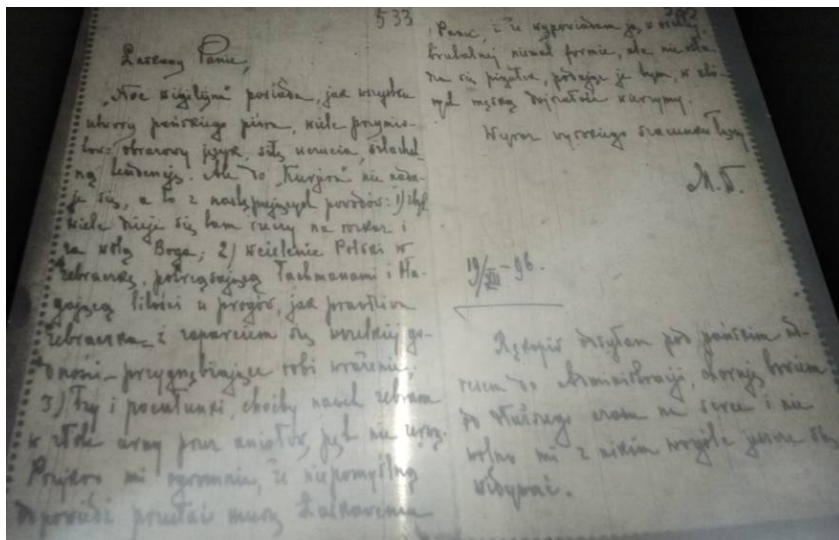 533
Łaskawy Panie,
"Noc wigilijna" posiada, jak wszystkie
utwory pańskiego pióra, wiele przymio-
tów: obrazowy język, siłę uczucia, szlachet-
ną tendencję. Ale do "Kurjera" nie nada-
je się, a to z następujących powodów: 1) zbyt
wiele dzieje się tam rzeczy na rozkaz i
za wolą Boga; 2) wcielenie Polski w
żebraczkę, potrząsającą łachmanami i bła-
gającą litości u progów, jak prawdziwa
żebraczka z zaparciem się wszelkiej go-
dności – przygnębiające robi wrażenie;
3) łzy i pocałunki, choćby nawet zebrane
w złote urny przez aniołów, jęk nie
Przykro mi ogromnie, że niepomyślną
odpowiedź przesłać muszę Łaskawemu
Panu, i że wypowiadam ją w
brutalnej niemal formie, ale nie
da się pigułek, podając je tym, w
rych męską dojrzałość wierzymy.
Wyraz wysokiego szacunku łączę
19/XII – 96.
Rękopis odsyłam pod pańskim ad-
resem do Administracji, choruję bowiem
do dłuższego czasu na serce i nie
wolno mi z nikim wogóle jeszcze się
widywać.